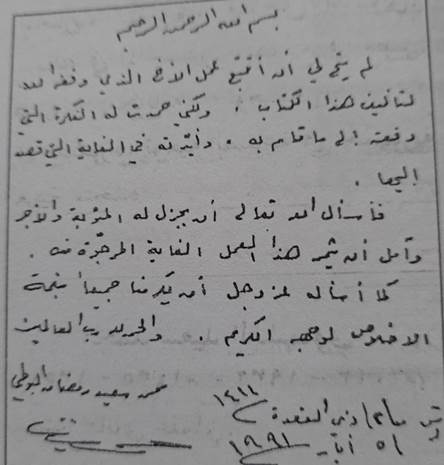 بسم الله الرحمن الرحيم
لم يتح لي أن أتتبع عمل الأخ الذي وفقه الله
لتأليف هذا الكتاب . ولكني حمدت له الفكرة التي
دفعته إلى ما قام به . وأيدته في الغاية التي قصد
إليها .
فأسأل الله تعالى أن يجزل له المثوبة والأجر
وآمل أن يثمر هذا العمل الغاية المرجوّة منه .
كما أسأله عز وجل أن يكرمنا جميعاً بنعمة
الإخلاص لوجهه الكريم . والحمد لله رب العالمين
محمد سعيد رمضان البوطي
ذي القعدة ١٤١١
أيار ١٩٩١